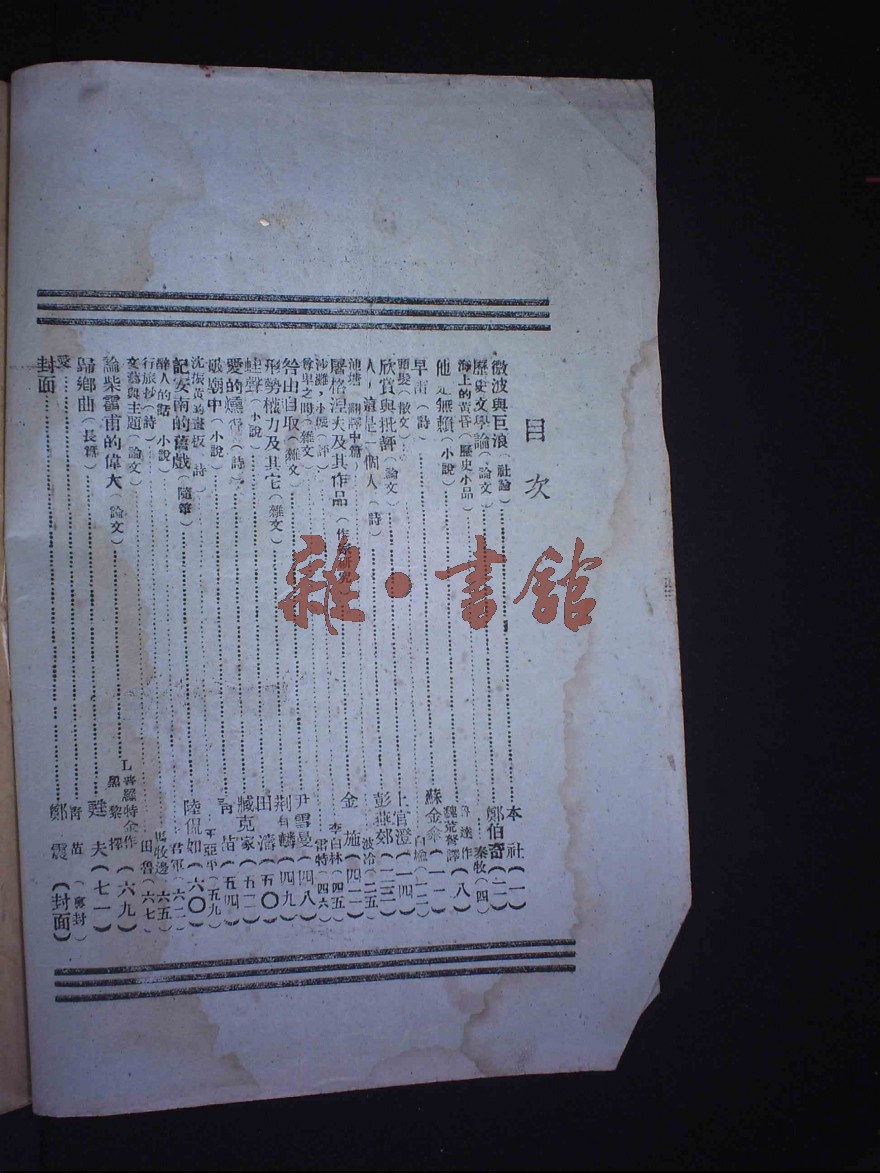 目次
微波與巨浪(社論)本社(一)
歷史文學論(論文)鄭伯奇(二)
海上的黃昏(歷史小品)秦牧(四)
他是無賴(小說)達作 魏荒弩譯(八)
早雨(詩)蘇金傘(一一)
頭髮(散文)白(一二)
欣賞與批評(論文)上官澄(一四)
人,這是一個人(詩)彭燕郊(二三)
池塘(翻譯中篇)波冷(二五)
屠格涅夫及其作品(作家研究)金施(四一)
沙灘,小(評)李白林(四五)
尊卑之間(雜文)雷特(四六)
咎由自取(雜文)尹雪曼(四八)
形勢權力及其它(雜文)荆有麟(四九)
蛙聲(小說)田濤(五〇)
愛的(詩)臧克家(五二)
破廟中(小說)青苗(五四)
沈板(詩)王亞平(五九)
記安南的舊戲(隨筆)陸侃如(六〇)
醉人的話(小說)君軍(六二)
行旅抄(詩)馬牧邊(六五)
文藝與主題(論文)田魯(六七)
論柴霍甫的偉大(論文)L 普羅特金作 黎擇(六九)
歸鄉曲(長篇)甦夫(七一)
愛 青苗
封面 鄭震(封面)
雜・書館